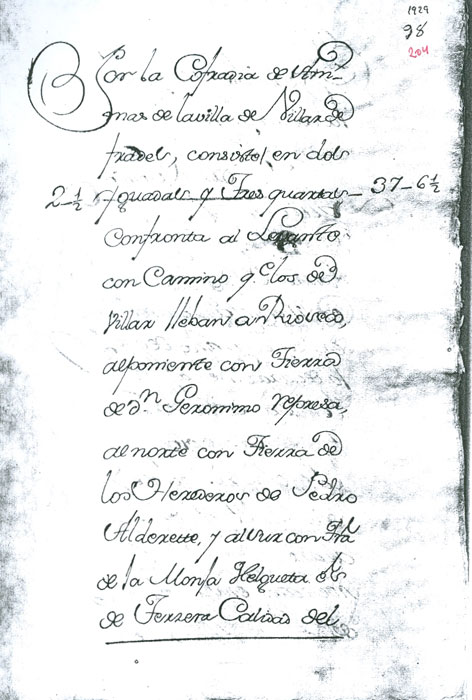 1929
98
204
Por la Cofradia de Ani-
mas de la villa de Villar de
frades, consiste en dos
2-½ Yguadas y Tres quartas 37-6½
Confronta al Levante
con Camino q.e los de
Villar lleban a Rioseco,
al poniente con Tierra
de d.n Geronimo represa,
al norte con Tierra de
los Herederos de Pedro
Alderette, y al sur con
de la Monja Helgueta
de Terzera Calidad del